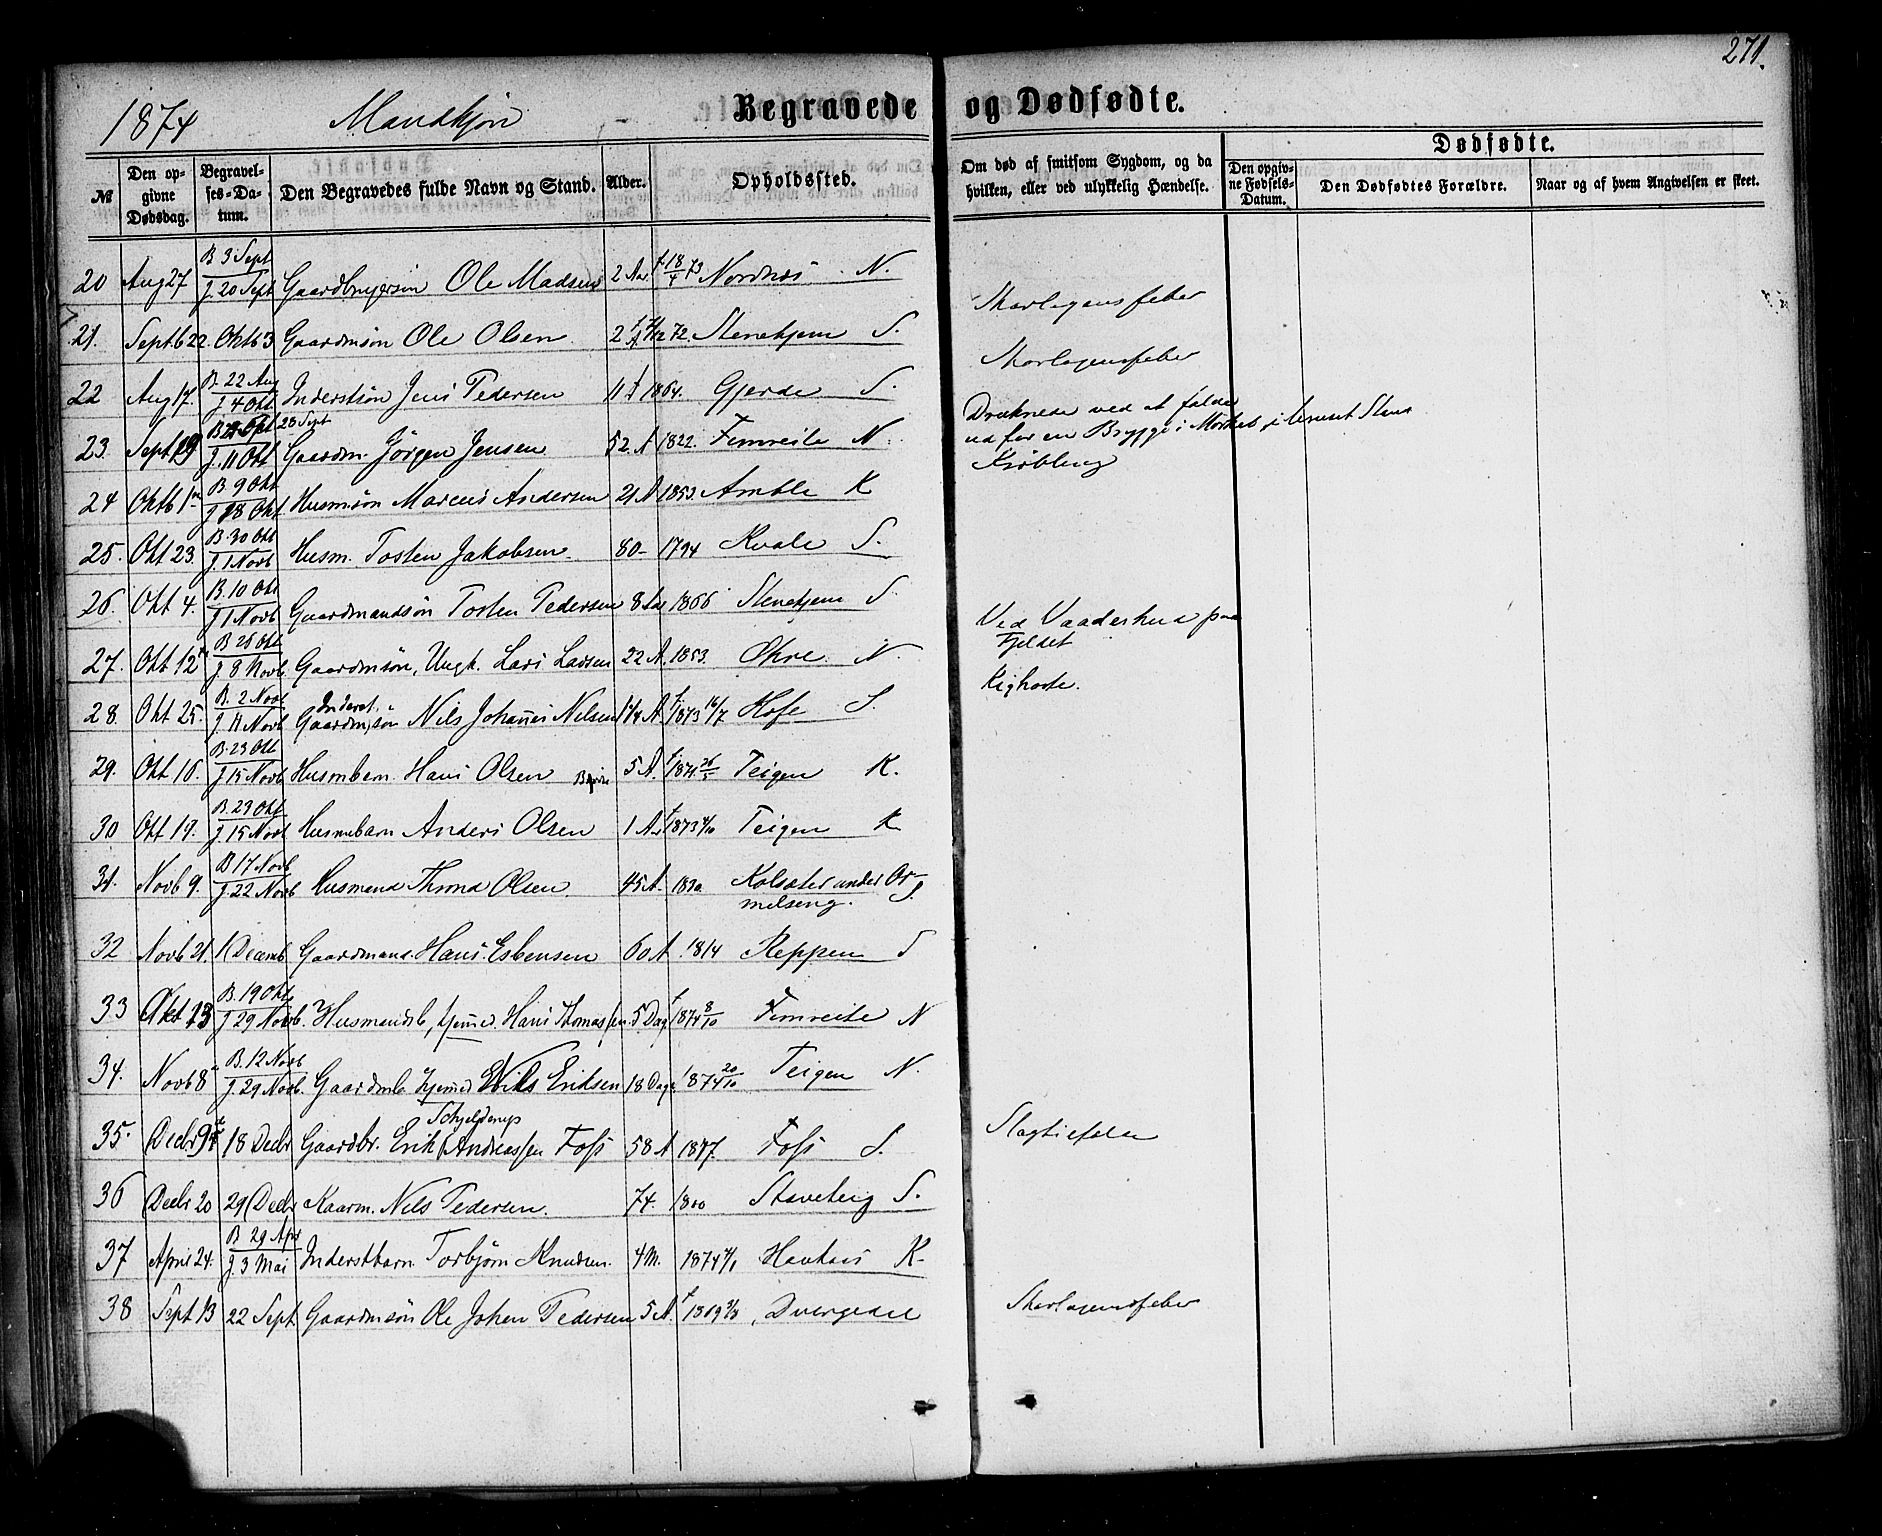 271.
1874 Mandkjøn Begravede og Dødfødte.
Dødfødte.
№ Den opgivne Dødsdag. Begravelses-Datum. Den Begravedes fulde Navn og Stand. Alder. Opholdssted. Om død af smitsom Sygdom, og da hvilken, eller ved ulykkelig Hændelse. Den opgivne Fødsels-Datum. Den Dødfødtes Forældre. Naar og af hvem Angivelsen er skeet.
20 Aug 27 B 3 Sept J. 20 Sept Ole Madsen 2 Aar f 18/4 73 Nordnes N.
Skarlagensfeber
21. Septb 22. Oktb 3 Gaardmsøn Ole Olsen 2 72. Stenehjem S.
Skarlagensfeber
22 Aug 17. B. 22 Aug J. 4 Okt Inderstsøn Jens Pedersen 11 f 1864. Gjerde S.
Druknede ved at falde
ud for en Brygge i Mørket
23. Sept 19 26 Sept J. 11 Okt Gaardm. Jørgen Jensen 52. A 1822. Fimreite N.
24 Oktb 1 B 9 Okt J 18 Okt. Husmsøn Marcus Andersen 21 A 1853. Amble K
25. Okt 23. B. 30 Okt J. 1 Novb Husm. Tosten Jakobsen 80 1794 Kvale S.
26. Okt 4. B. 10 Okt J 1 Novb Gaardmandsøn Tosten Pedersen 8 Aar 1866 Stenehjem S.
Ved Vaadeskud paa
Fjeldet
27. Okt 12 B 26 Okt J. 8 Novb. Gaardmsøn, Ungk. Lars Larsen 22 A. 1853. Okre N
Kighoste.
28. Okt 25. B. 2 Novb J. 11 Novb Inderst. Gaardmsøn Nils Johannes Nilsen 1 1/4 A. f 1873 16/7 Hofe S.
29. Okt 16. B. 23 Okt J. 15 Novb Husmbarn Hans Olsen 5 A. f 26/5 Teigen K.
30 Okt 19. B. 29 Okt J. 15 Novb Husmbarn Anders Olsen 1 A. f 1873 4/10 Teigen K
31. Novb 9. B 17 Novb J. 22 Novb Husmand Thrond Olsen. 45 A. 1830 Kolsæter under Or-
melseng. S.
32 Novb 21. 1 Decemb Gaardmand. Hans Esbensen 60 A. 1814 Reppen S
33 Okt 13 B. 19 Okt J 29 Novb. Husmandsb, hjemmed. Hans Thomassen. 5 Dag f 1874 8/10 Fimreite N
34. Novb 8 B. 12 Novb J. 29 Novb. Gaardmb hjemmed Nils Eriksen 18 Dage f 1874 20/10 Teigen N.
35. Decbr 9 18 Decbr Gaardbr. Erik Schjelderup (Andreassen Foss 58 A 1817. Foss S.
Slagtilfælde
36 Decbr 20 29 Decbr Kaarm. Nils Pedersen. 74. 1800 Staveteig S.
37 April 24. B 29 Apr J. 3 Mai Inderstbarn Torbjørn Knudsen. 4 M. 1874 4/1 Haukaas K.
38 Sept 13 22 Sept. Gaardmsøn Ole Johan Pedersen 5 A. f Dvergedal
Skarlagensfeber